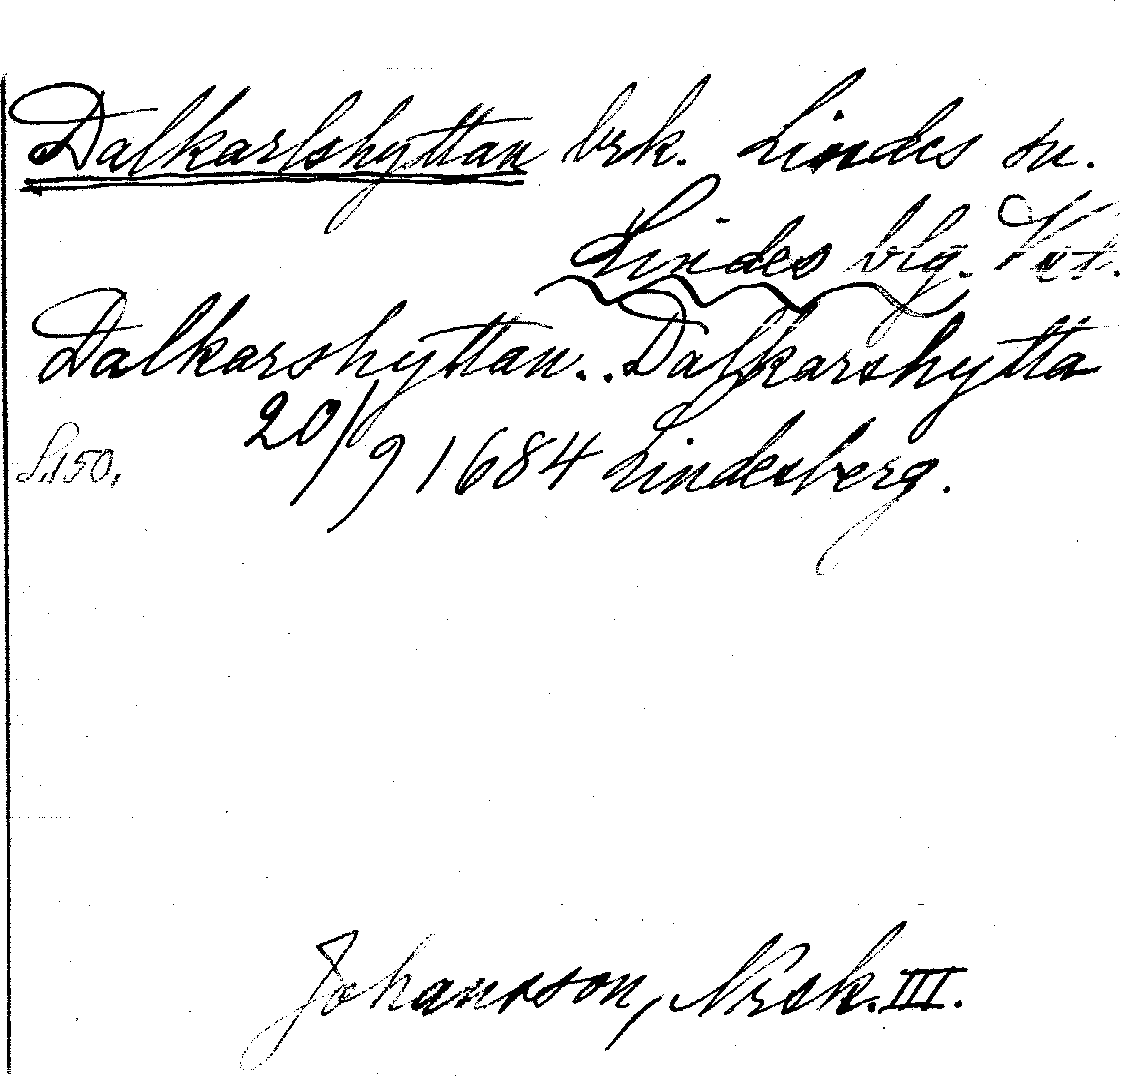 Dalkarlshyttan brk. Lindes sn.
Lindes blg. Vstm.
Dalkarshyttan. . Dalkarshytta
20/9 1684 Lindesberg.
S.150.
Johansson, Nrsk. III.